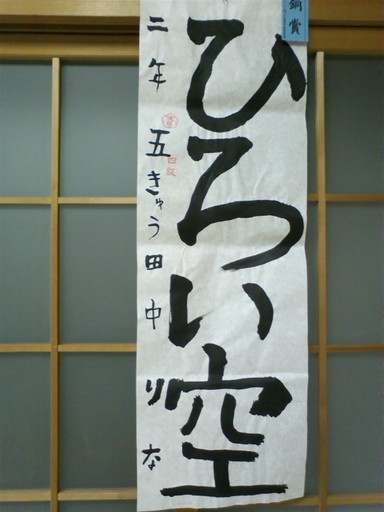 銅賞
ひろい空
二年 五きゅう 田中りな